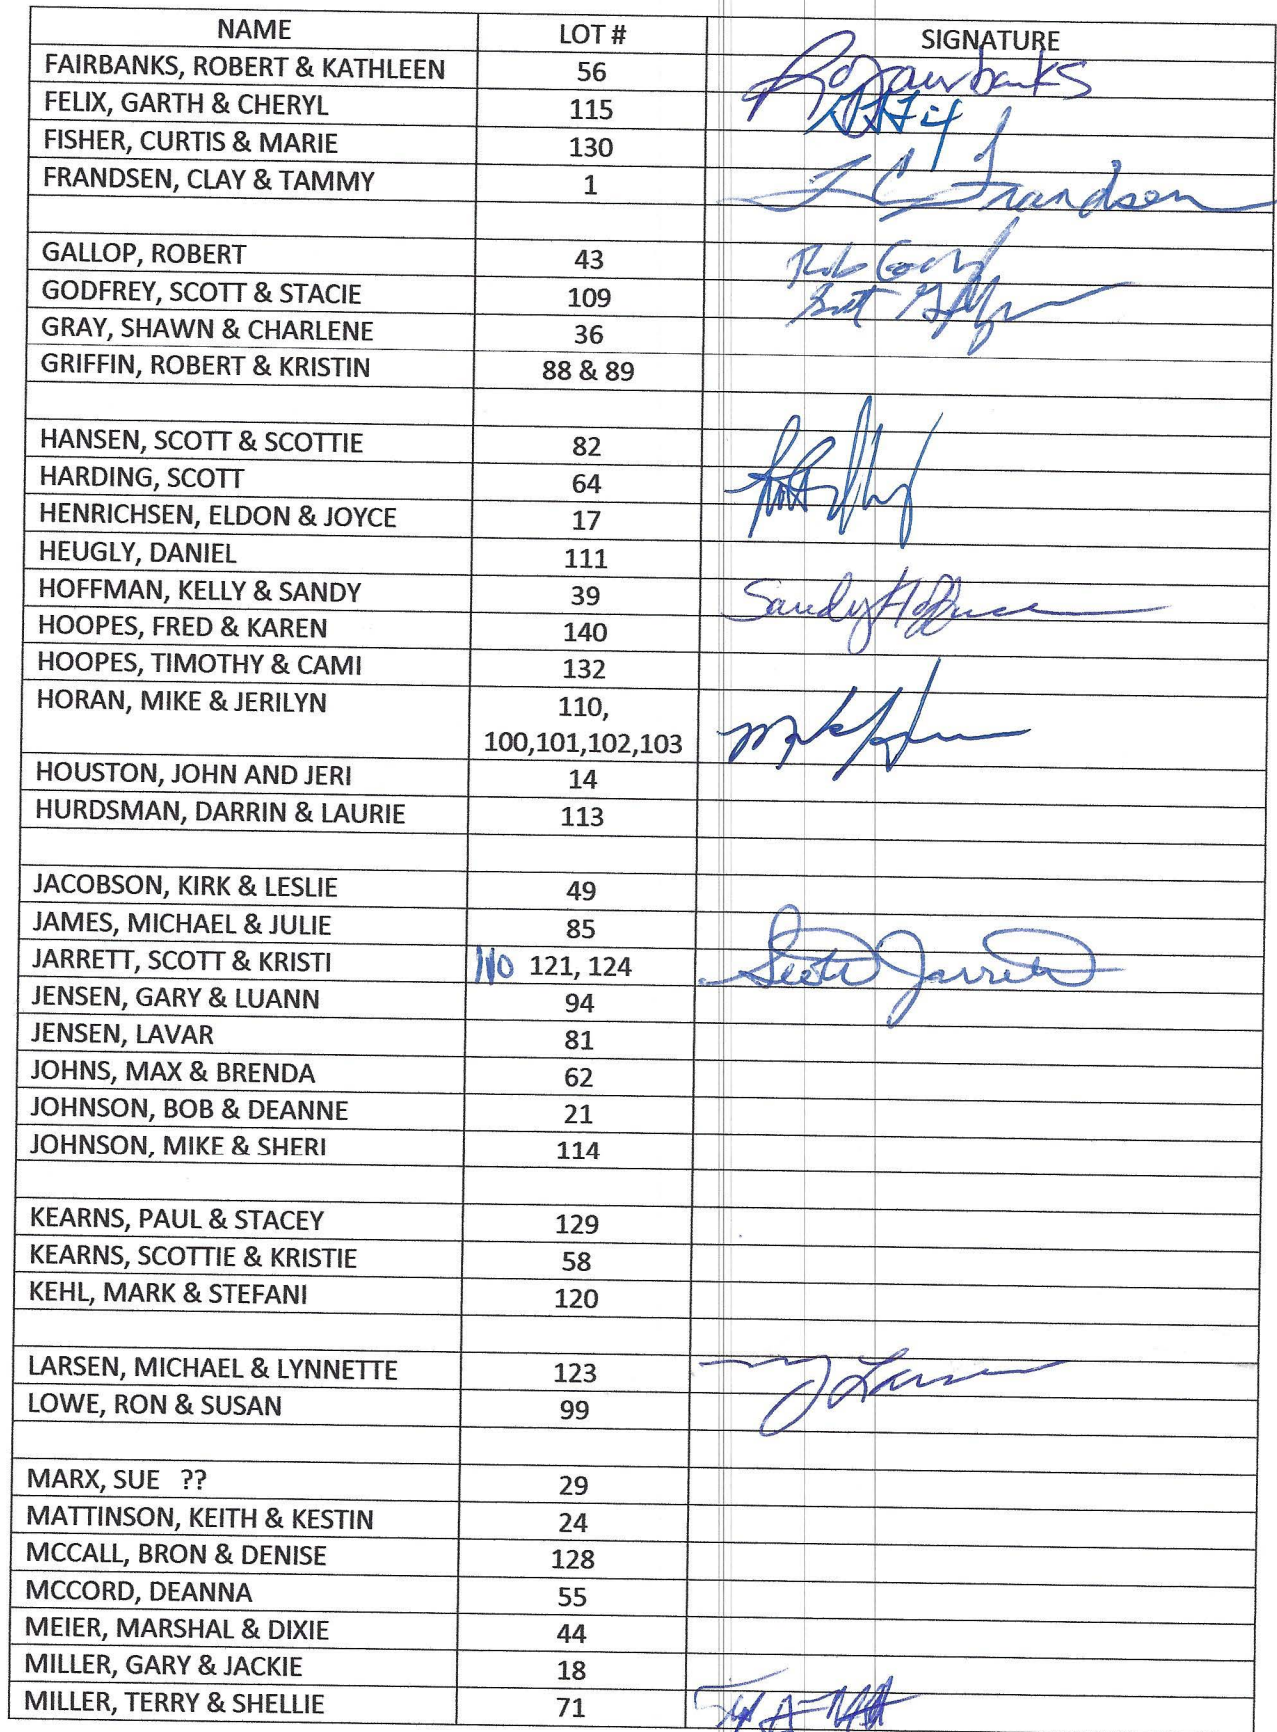 NAME LOT # SIGNATURE
FAIRBANKS, ROBERT & KATHLEEN 56 Fairbanks
FELIX, GARTH & CHERYL 115
FISHER, CURTIS & MARIE 130
FRANDSEN, CLAY & TAMMY 1 T C Frandsen
GALLOP, ROBERT 43 Rob
GODFREY, SCOTT & STACIE 109 Scott
GRAY, SHAWN & CHARLENE 36
GRIFFIN, ROBERT & KRISTIN 88 & 89
HANSEN, SCOTT & SCOTTIE 82
HARDING, SCOTT 64
HENRICHSEN, ELDON & JOYCE 17
HEUGLY, DANIEL 111
HOFFMAN, KELLY & SANDY 39 Sandy Hoffman
HOOPES, FRED & KAREN 140
HOOPES, TIMOTHY & CAMI 132
HORAN, MIKE & JERILYN 110,
100,101,102,103
HOUSTON, JOHN AND JERI 14
HURDSMAN, DARRIN & LAURIE 113
JACOBSON, KIRK & LESLIE 49
JAMES, MICHAEL & JULIE 85
JARRETT, SCOTT & KRISTI 121, 124 Scott Jarrett
JENSEN, GARY & LUANN 94
JENSEN, LAVAR 81
JOHNS, MAX & BRENDA 62
JOHNSON, BOB & DEANNE 21
JOHNSON, MIKE & SHERI 114
KEARNS, PAUL & STACEY 129
KEARNS, SCOTTIE & KRISTIE 58
KEHL, MARK & STEFANI 120
LARSEN, MICHAEL & LYNNETTE 123 Larsen
LOWE, RON & SUSAN 99
MARX, SUE ?? 29
MATTINSON, KEITH & KESTIN 24
MCCALL, BRON & DENISE 128
MCCORD, DEANNA 55
MEIER, MARSHAL & DIXIE 44
MILLER, GARY & JACKIE 18
MILLER, TERRY & SHELLIE 71